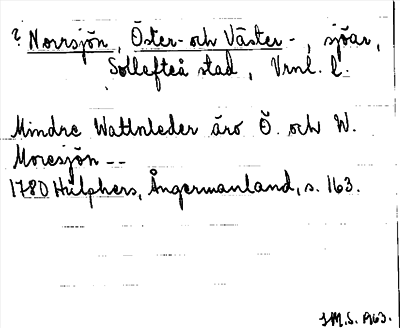 ? Norrsjön, Öster- och Väster-, sjöar,
Sollefteå stad, Vrnl. l.
Mindre Wattnleder äro Ö. och W.
Moresjön --
1780 Hülphers, Ångermanland, s. 163.
J.M.S. 1963.